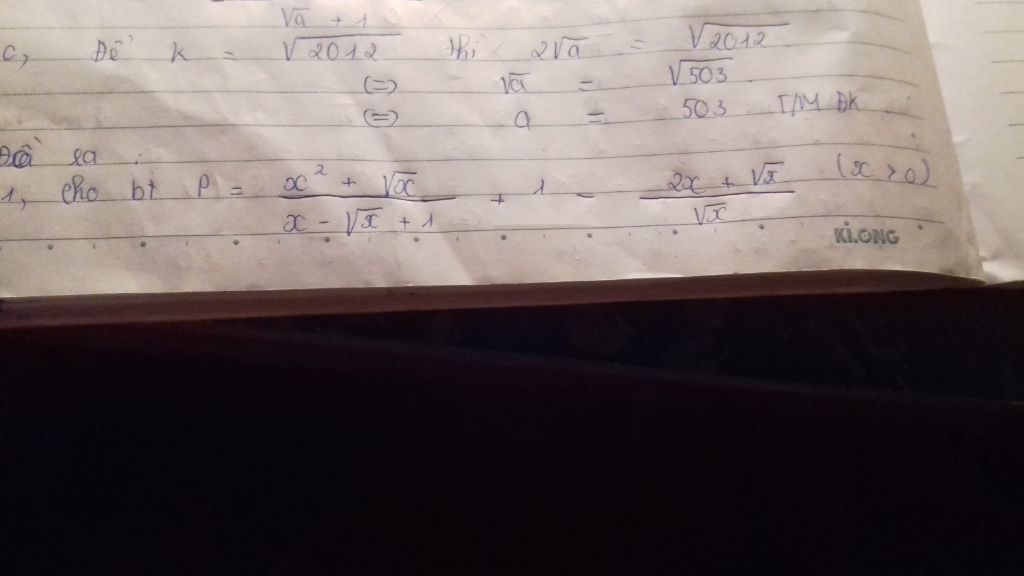 √a + 1
c, Để K = √2012 thì 2√a = √2012
(=) √a = √503
(=) a = 503 T/M ĐK
1, cho bt P = (x² + √x)/(x - √x + 1) + 1 - (2x + √x)/√x (x > 0)
KLONG